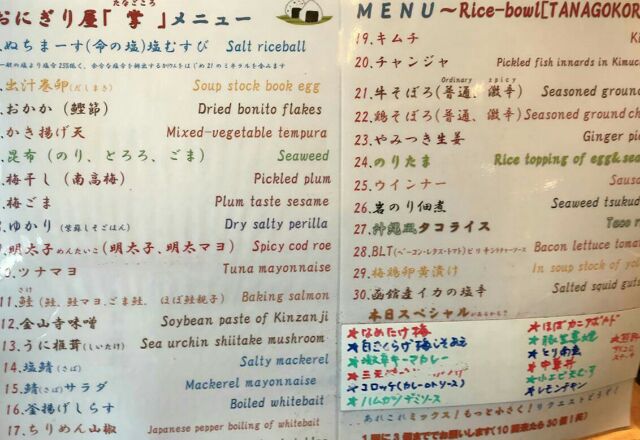 たなごころ
おにぎり屋「掌」メニュー
ぬちまーす(命の塩)塩むすび Salt riceball
出汁巻卵(だしまき) Soup stock book egg
おかか(鰹節) Dried bonito flakes
かき揚げ天 Mixed-vegetable tempura
昆布(のり、とろろ、ごま) Seaweed
梅干し(南高梅) Pickled plum
梅ごま Plum taste sesame
ゆかり(紫蘇しそごはん) Dry salty perilla
明太子めんたいこ(明太子、明太マヨ) Spicy cod roe
0.ツナマヨ Tuna mayonnaise
さけ
11.鮭(鮭、鮭マヨ、ごま鮭、ほぼ鮭親子) Baking salmon
12.金山寺味噌 Soybean paste of Kinzanji
13.うに椎茸(しいたけ) Sea urchin shiitake mushroom
14.塩鯖(さば) Salty mackerel
15.鯖(さば)サラダ Mackerel mayonnaise
16.釜揚げしらす Boiled whitebait
17.ちりめん山椒 Japanese pepper boiling of whitebait
MENU～Rice-bowl[TANAGOKOR
19.キムチ Ki
20.チャンジャ Pickled fish innards in Kimuc
Ordinary spicy
21.牛そぼろ(普通、激辛) Seasoned ground
22.鶏そぼろ(普通、激辛) Seasoned ground ch
23.やみつき生姜 Ginger pic
24.のりたま Rice topping of egg&sea
25.ウインナー Sausa
26.岩のり佃煮 Seaweed tsukud
27.沖縄風タコライス Taco r
28.BLT(ベーコン・レタス・トマト)ピリキンチャーソース Bacon lettuce toma
29.梅鶏卵黄漬け In soup stock of yol
30.函館産イカの塩辛 Salted squid guts
本日スペシャル
★なめたけ梅
★白こんらげ梅しそあえ
★岐阜キーマカレー
★コロッケ(カレーorトソース)
★ハムカツデミソース
★とり南蛮
★中華丼
★レモンチキン
あれこれミックス!もっと小さく!リクエストどうぞ!